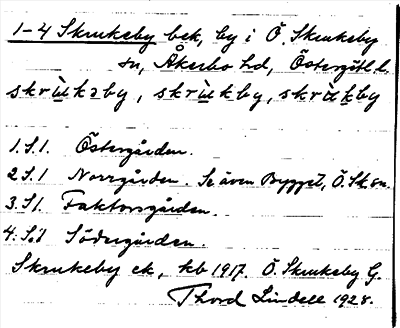 1-4 Skrukeby bek, by i Ö. Skrukeby
sn, Åkerbo hd, Östergötl. l.
skrùkəby, skrùkby, skrùkby
1. S1. Östergården.
2. S1 Norrgården. Se även Bygget, Ö. Sk. sn.
3. S1. Faktorsgården.
4. S1 Södergården.
Skrukeby ek, kb 1917. Ö. Skrukeby G.
Thord Lindell 1928.